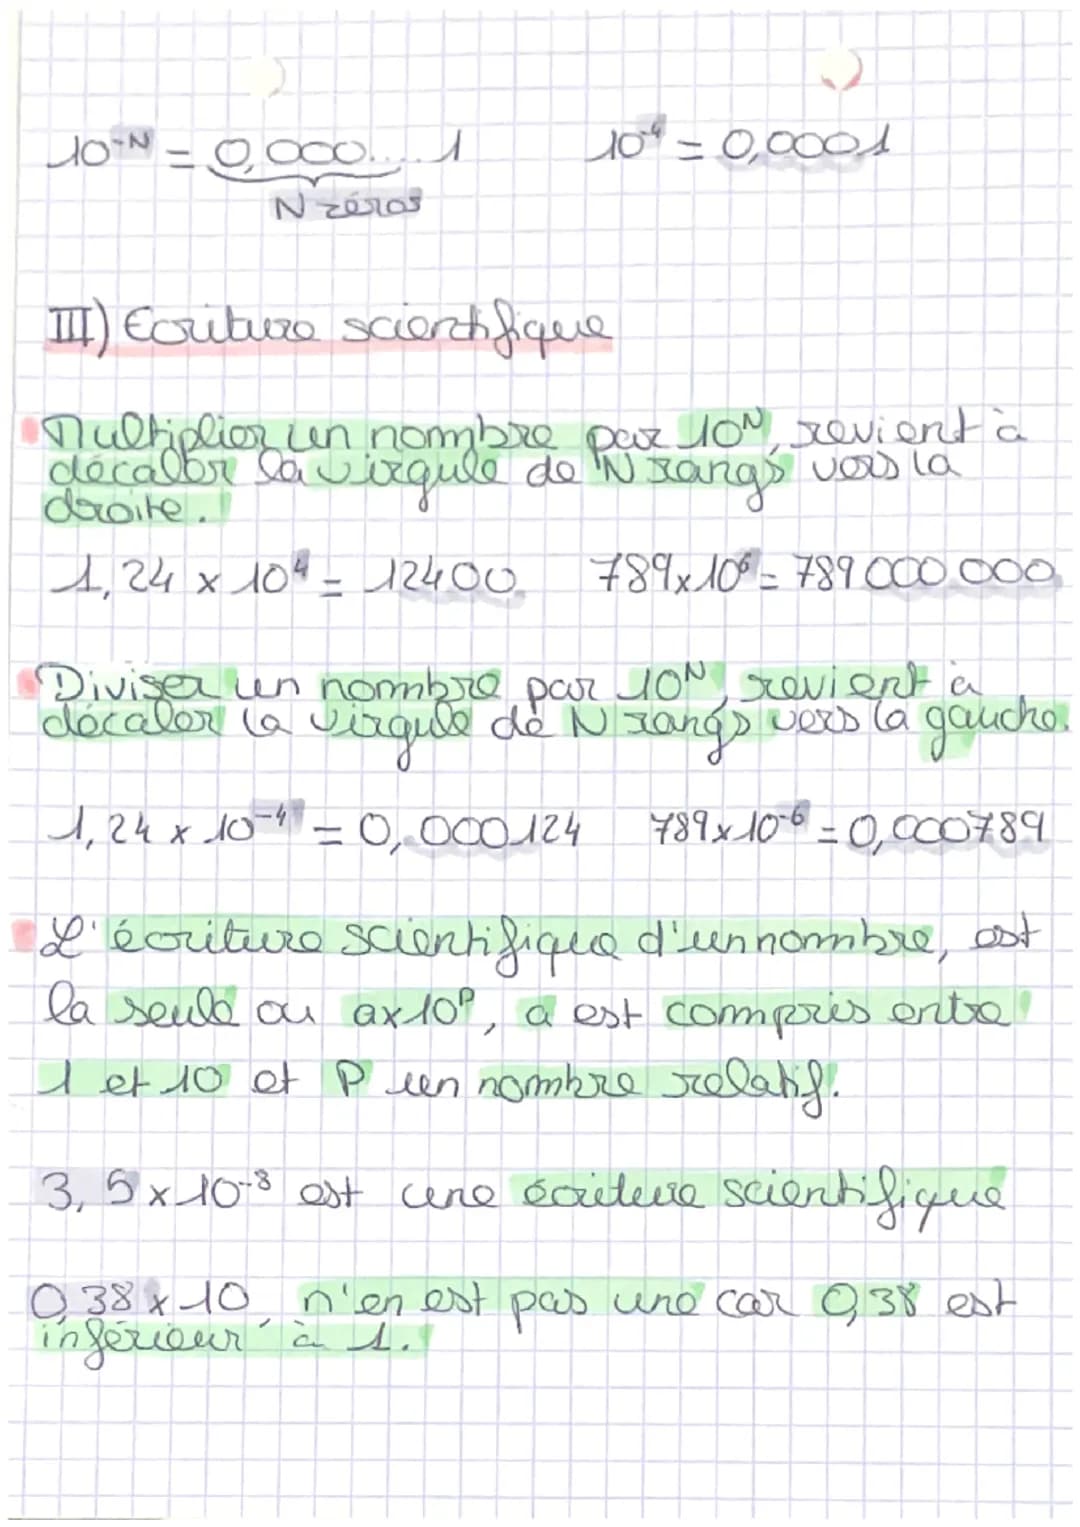 10⁻ᴺ = 0,000....1 10⁻⁴ = 0,0001
N zéros
III) Ecriture scientifique
Multiplier un nombre par 10ᴺ, revient à
décaler la virgule de N rangs vers la
droite.
1,24 x 10⁴ = 12400 789x10⁶ = 789 000 000
Diviser un nombre par 10ᴺ, revient à
décaler la virgule de N rangs vers la gauche.
1,24 x 10⁻⁴ = 0,000124 789x10⁻⁶ = 0,000789
L'écriture scientifique d'un nombre, est
la seule ou ax10ᴾ, a est compris entre
1 et 10 et P un nombre relatif.
3,5 x 10⁻⁸ est une écriture scientifique
0,38 x 10, n'en est pas une car 0,38 est
inférieur à 1.